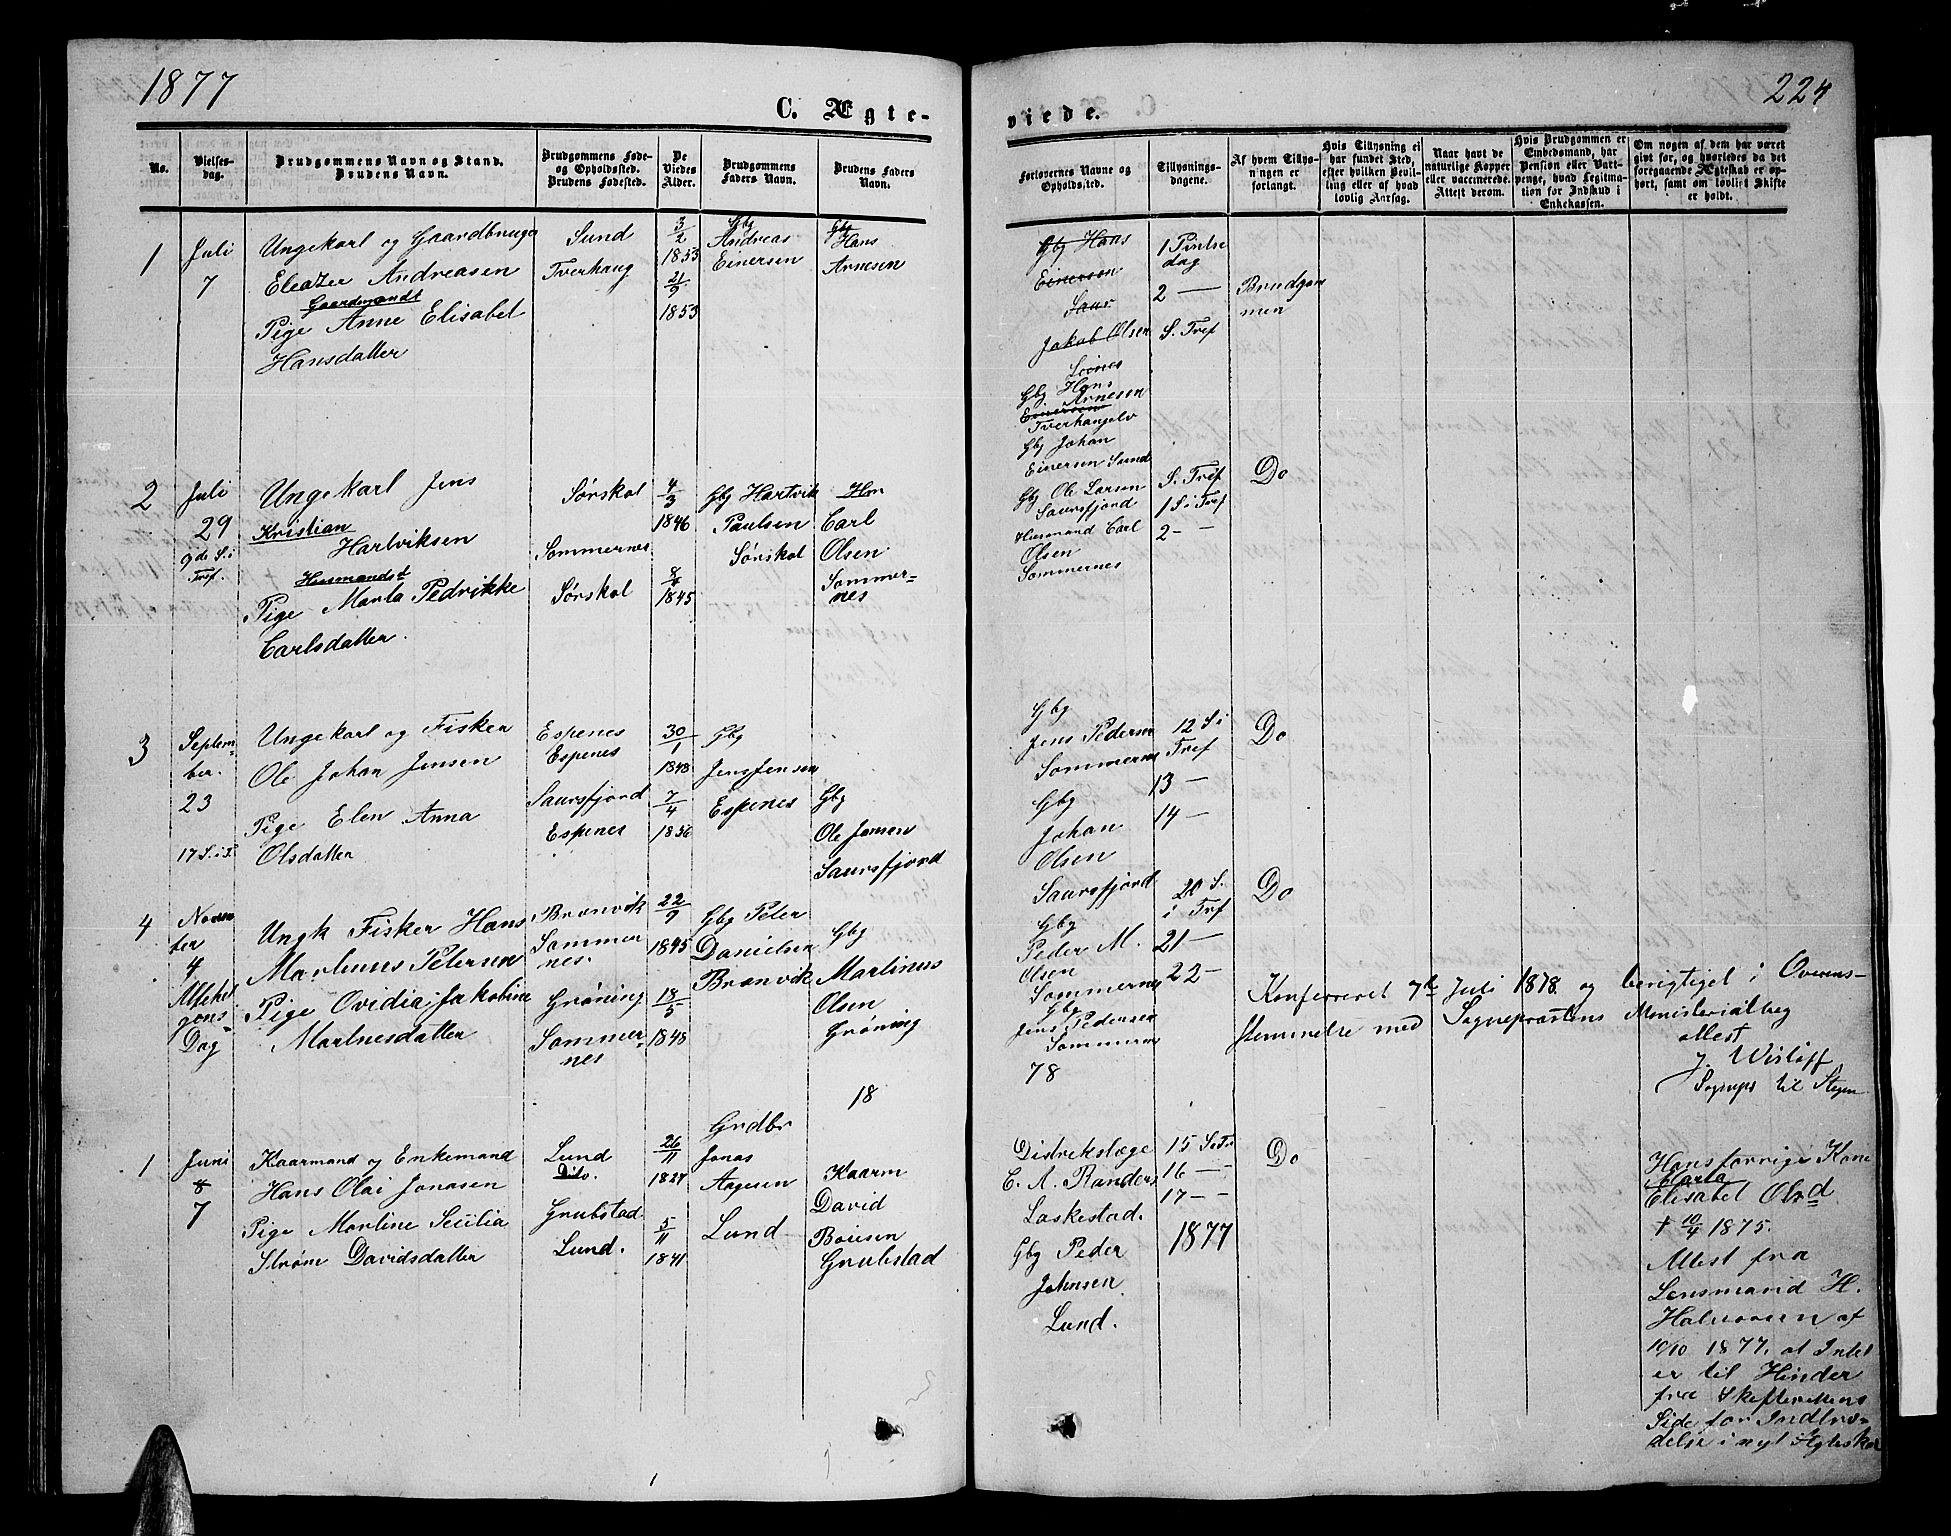 1877
224
C. Ægte-
viede.
No.
Vielses-
dag.
Brudgommens Navn og Stand.
Brudens Navn.
Brudgommens Føde-
og Opholdssted.
Brudens Fødested.
De
Viedes
Alder.
Brudgommens
Faders Navn.
Brudens Faders
Navn.
Forlovernes Navne og
Opholdssted.
Tillysnings-
dagene.
Af hvem Tillys-
ningen er
forlangt.
Hvis Tillysning ei
har fundet Sted,
efter hvilken Bevil-
ling eller af hvad
lovlig Aarsag.
Naar havt de
naturlige Kopper
eller vaccinerede.
Attest derom.
Hvis Brudgommen er
Embedsmand, har
Pension eller Vart-
penge, hvad Legitima-
tion for Indskud i
Enkekassen.
Om nogen af dem har været
givt før, og hvorledes da det
foregaaende Ægteskab er op-
hørt, samt om lovligt Skifte
er holdt.
1
Juli
7
Ungekarl og Gaardbruger
Eleazer Andreasen
Gaardmandsd
Pige Anne Elisabet
Hansdatter
Sund
Tverhaug
3/2
1853
21/9
1853
Gbg
Andreas
Einersen
Gbg
Hans
Arnesen
Gbg Hans
Einersen
Saur
Jakob Olsen
Leines
Gbg Hans
Arnesen
Einersen
Gbg Johan
Einersen Sund
1 Pintse
dag
2 —
S. Tref
Brudgom
men
2
Juli
29
9de S. i
Tref.
Ungekarl Jens
Kristian
Hartviksen
Husmandsd
Pige Marta Pedrikke
Carlsdatter.
Sørskot
Sommernes
Sørskot
4/3
1846
1845
Gbg Hartvik
Paulsen
Sørskot
Hm
Carl
Olsen
Sommer-
nes
Gbg Ole Larsen
Saursfjord
Husmand Carl
Olsen
Sommernes
S. Tref
1 S i Tref
2 - -
Do
3
Septem-
ber.
23
17 S. i T.
Ungekarl og Fisker
Ole Johan Jensen
Pige Elen Anna
Olsdatter
Espenes
Espenes
Saursfjord
Espenes
30/1
1848
7/4
1856
Gbg
Jens Jensen
Espenes
Gbg
Ole Jensen
Saursfjord
Gbg
Jens Pedersen
Sommernes
Gbg
Johan
Olsen
Saursfjord
12 S i
Tref
13 —
14 —
Do
4
Novem
ber
4
Allehel
gens-
Dag
Ungk Fisker Hans
Martinus Petersen
Pige Ovidia Jakobine
Martnesdatter
Brænvik
Sommer
nes.
Grøning
Sommer-
nes
22/9
1845
18/5
1848
Gbg Peter
Danielsen
Brænvik
Gbg
Martinus
Olsen
Grøning
Gbg
Peder M.
Olsen
Sommernes
Gbg
Jens Pedersen
Sommernes
20 S.
i Tref
21 —
22 —
Do
Konfereret 7de Juli 1878 og berigtiget i Overens-
stemmelse med Sognepræstens Ministerialbog
attest
J. Wisløff
Sognepr til Stegen
18
78
1
Juni
8
7
Kaarmand og Enkemand
Hans Olai Jonasen
Pige Martine Secilia
Strøm Davidsdatter
Lund
Dito.
Grubstad
Lund.
26/11
1827
5/11
1841
Grdbr
Jonas
Aagesen
Lund
Kaarm
David
Boiesen
Grubstad
Distrikslæge
C. A. Randers
Laskestad.
Gbg Peder
Johnsen
Lund.
15 S. e. Tr.
16 — -
17 - -
1877
Do
Hans forrige Kone
Marta
Elisabet Olsd
† 10/4 1875.
Attest fra
Lensmand H.
Halvorsen af
10/10 1877, at Intet
er til Hinder
fra Skifterettens
Side for Indtræ-
delse i nyt Ægteskab